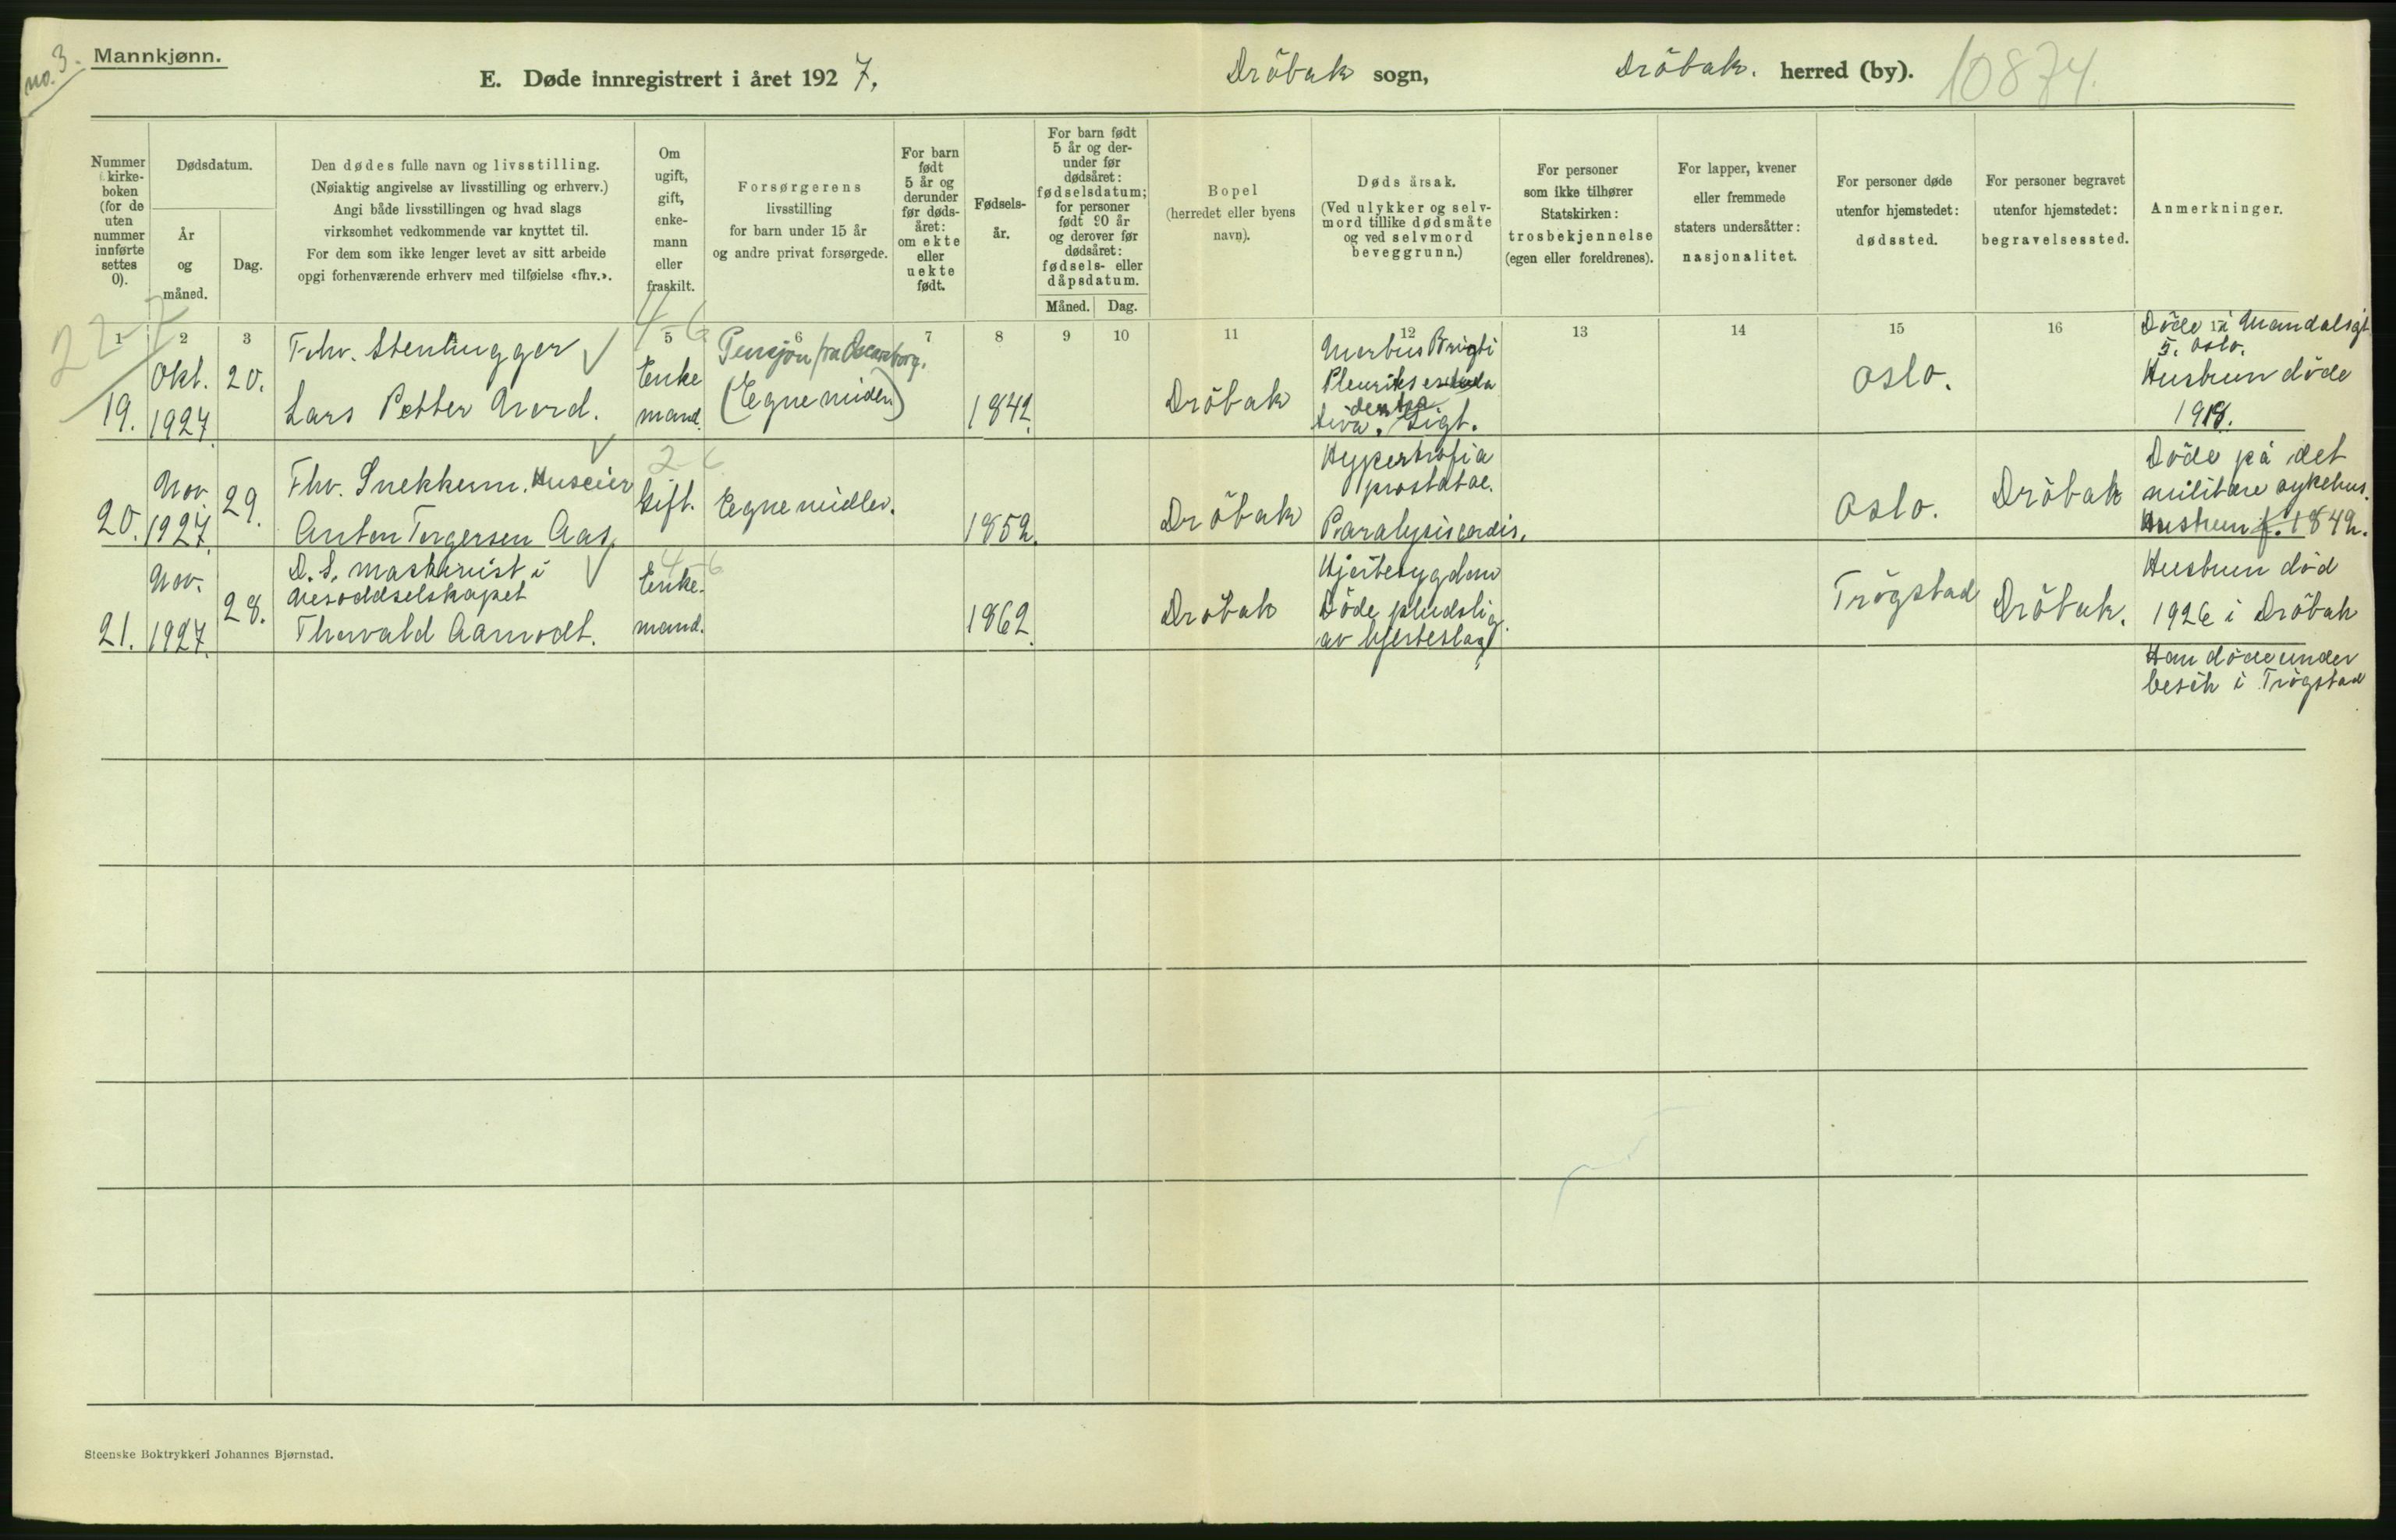 no. 3.
Mannkjønn.
E. Døde innregistrert i året 1927.
Dröbak sogn,
Dröbak. herred (by).
10874.
Nummer
kirke-
boken
(for de
uten
nummer
innførte
settes
0).
Dødsdatum.
År
og
måned.
Dag.
Den dødes fulle navn og livsstilling.
(Nøiaktig angivelse av livsstilling og erhverv.)
Angi både livsstillingen og hvad slags
virksomhet vedkommende var knyttet til.
For dem som ikke lenger levet av sitt arbeide
opgi forhenværende erhverv med tilføielse «fhv.».
Om
ugift,
gift,
enke-
mann
eller
fraskilt.
Forsørgerens
livsstilling
for barn under 15 år
og andre privat forsørgede.
For barn
født
5 år og
derunder
før døds-
året:
om ekte
eller
uekte
født.
Fødsels-
år.
For barn født
5 år og der-
under før
dødsåret:
fødselsdatum;
for personer
født 90 år
og derover før
dødsåret:
fødsels- eller
dåpsdatum.
Måned. Dag.
Bopel
(herredet eller byens
navn).
Døds årsak.
(Ved ulykker og selv-
mord tillike dødsmåte
og ved selvmord
beveggrunn.)
For personer
som ikke tilhører
Statskirken:
trosbekjennelse
(egen eller foreldrenes).
For lapper, kvener
eller fremmede
staters undersåtter:
nasjonalitet.
For personer døde
utenfor hjemstedet:
dødssted.
For personer begravet
utenfor hjemstedet:
begravelsessted.
Anmerkninger.
1 2 3 5 6 7 8 9 10 11 12 13 14 15 16 17
22-7
19.
Okt.
1927.
20.
Fhv. Stenhugger
Lars Petter Nord.
4-6
Enke
mand.
Pensjon fra Oscarsborg.
(Egne midler)
1842.
Dröbak
Morbus Brigti
Pleurit
Gigt.
Oslo.
Döde i Mandalsgt
5. Oslo.
Hustrun döde
1918.
20.
Nov
1927.
29.
Fhv. Snekkerm. Huseier
Anton Torgersen Aas.
2-6
Gift.
Egne midler.
1852.
Dröbak
Hypertrofia
prostatae.
Paralysis cordis.
Oslo.
Dröbak
Döde på det
militære sykehus.
Hustrun f. 1842.
21.
Nov.
1927.
28.
D. S. maskinist i
Nesoddselskapet
Thorvald Aamodt.
4-6
Enke-
mand.
1862.
Dröbak
Hjertesygdom
Döde pludselig
av hjerteslag.
Trögstad
Dröbak.
Hustrun död
1926 i Dröbak
Han döde under
besök i Trögstad
Steenske Boktrykkeri Johannes Bjørnstad.